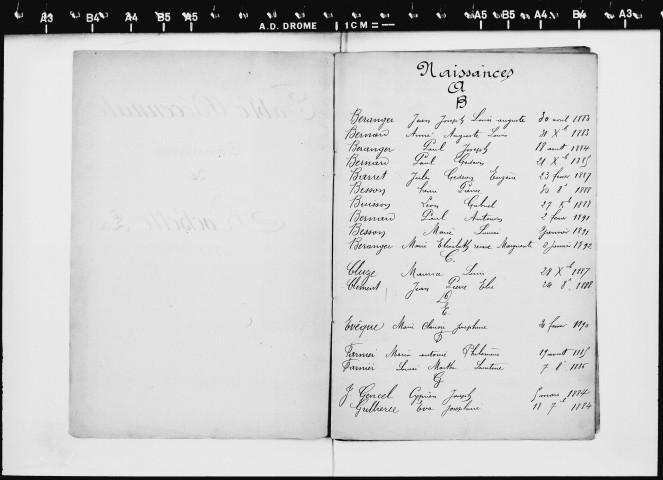 A3 B4 A4 B5 A5 A.D. DROME 1CM A5 B5 A4 B4 A3
Naissances
A
B
Beranger Jean Joseph Louis auguste 30 avril 1883
Bernard Anne Auguste Louis 21 Xbre 1883
Beranger Paul Joseph 18 aout 1884
Bernard Paul Gédéon 21 Xbre 1885
Barret Jules Gédéon Eugène 23 fevrier 1887
Besson Pierre 30 8bre 1888
Buisson Léon Gabriel 27 Xbre 1888
Bernard Paul Antonin 2 fevr 1891
Besson Marie Louise janvier 1891
Beranger Marie Elisabeth Marguerite 8 janvier 1892
C.
Cluze Maurice Louis 28 Xbre 1887
Clément Jean Pierre Elie 24 8bre 1888
D
E
Evêque Marie Joséphine fevrier 1890
F
Farnier Marie antoinie Philomène 19 aout 1885
Farnier Louise Marthe 7 8bre 1886
G
J Gencel Cyprien Joseph 5 mars 1884
Eva Joséphine 18 7bre 1884